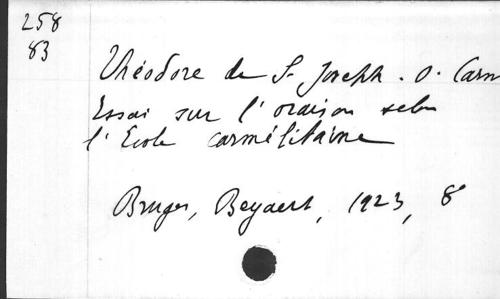 258
83
Théodore de S. Joseph. o. Carm
Essai sur l'oraison selon
l'Ecole carmélitaine
Bruges, Beyaert, 1923, 8°